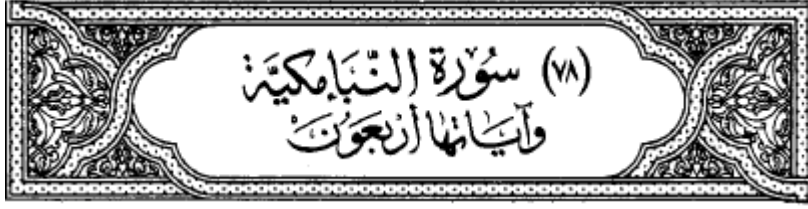 (٧٨) سُوْرَة النَّبَإِ مَكيَّة
وَآيَاتُهَا أَرْبَعَوُنَ